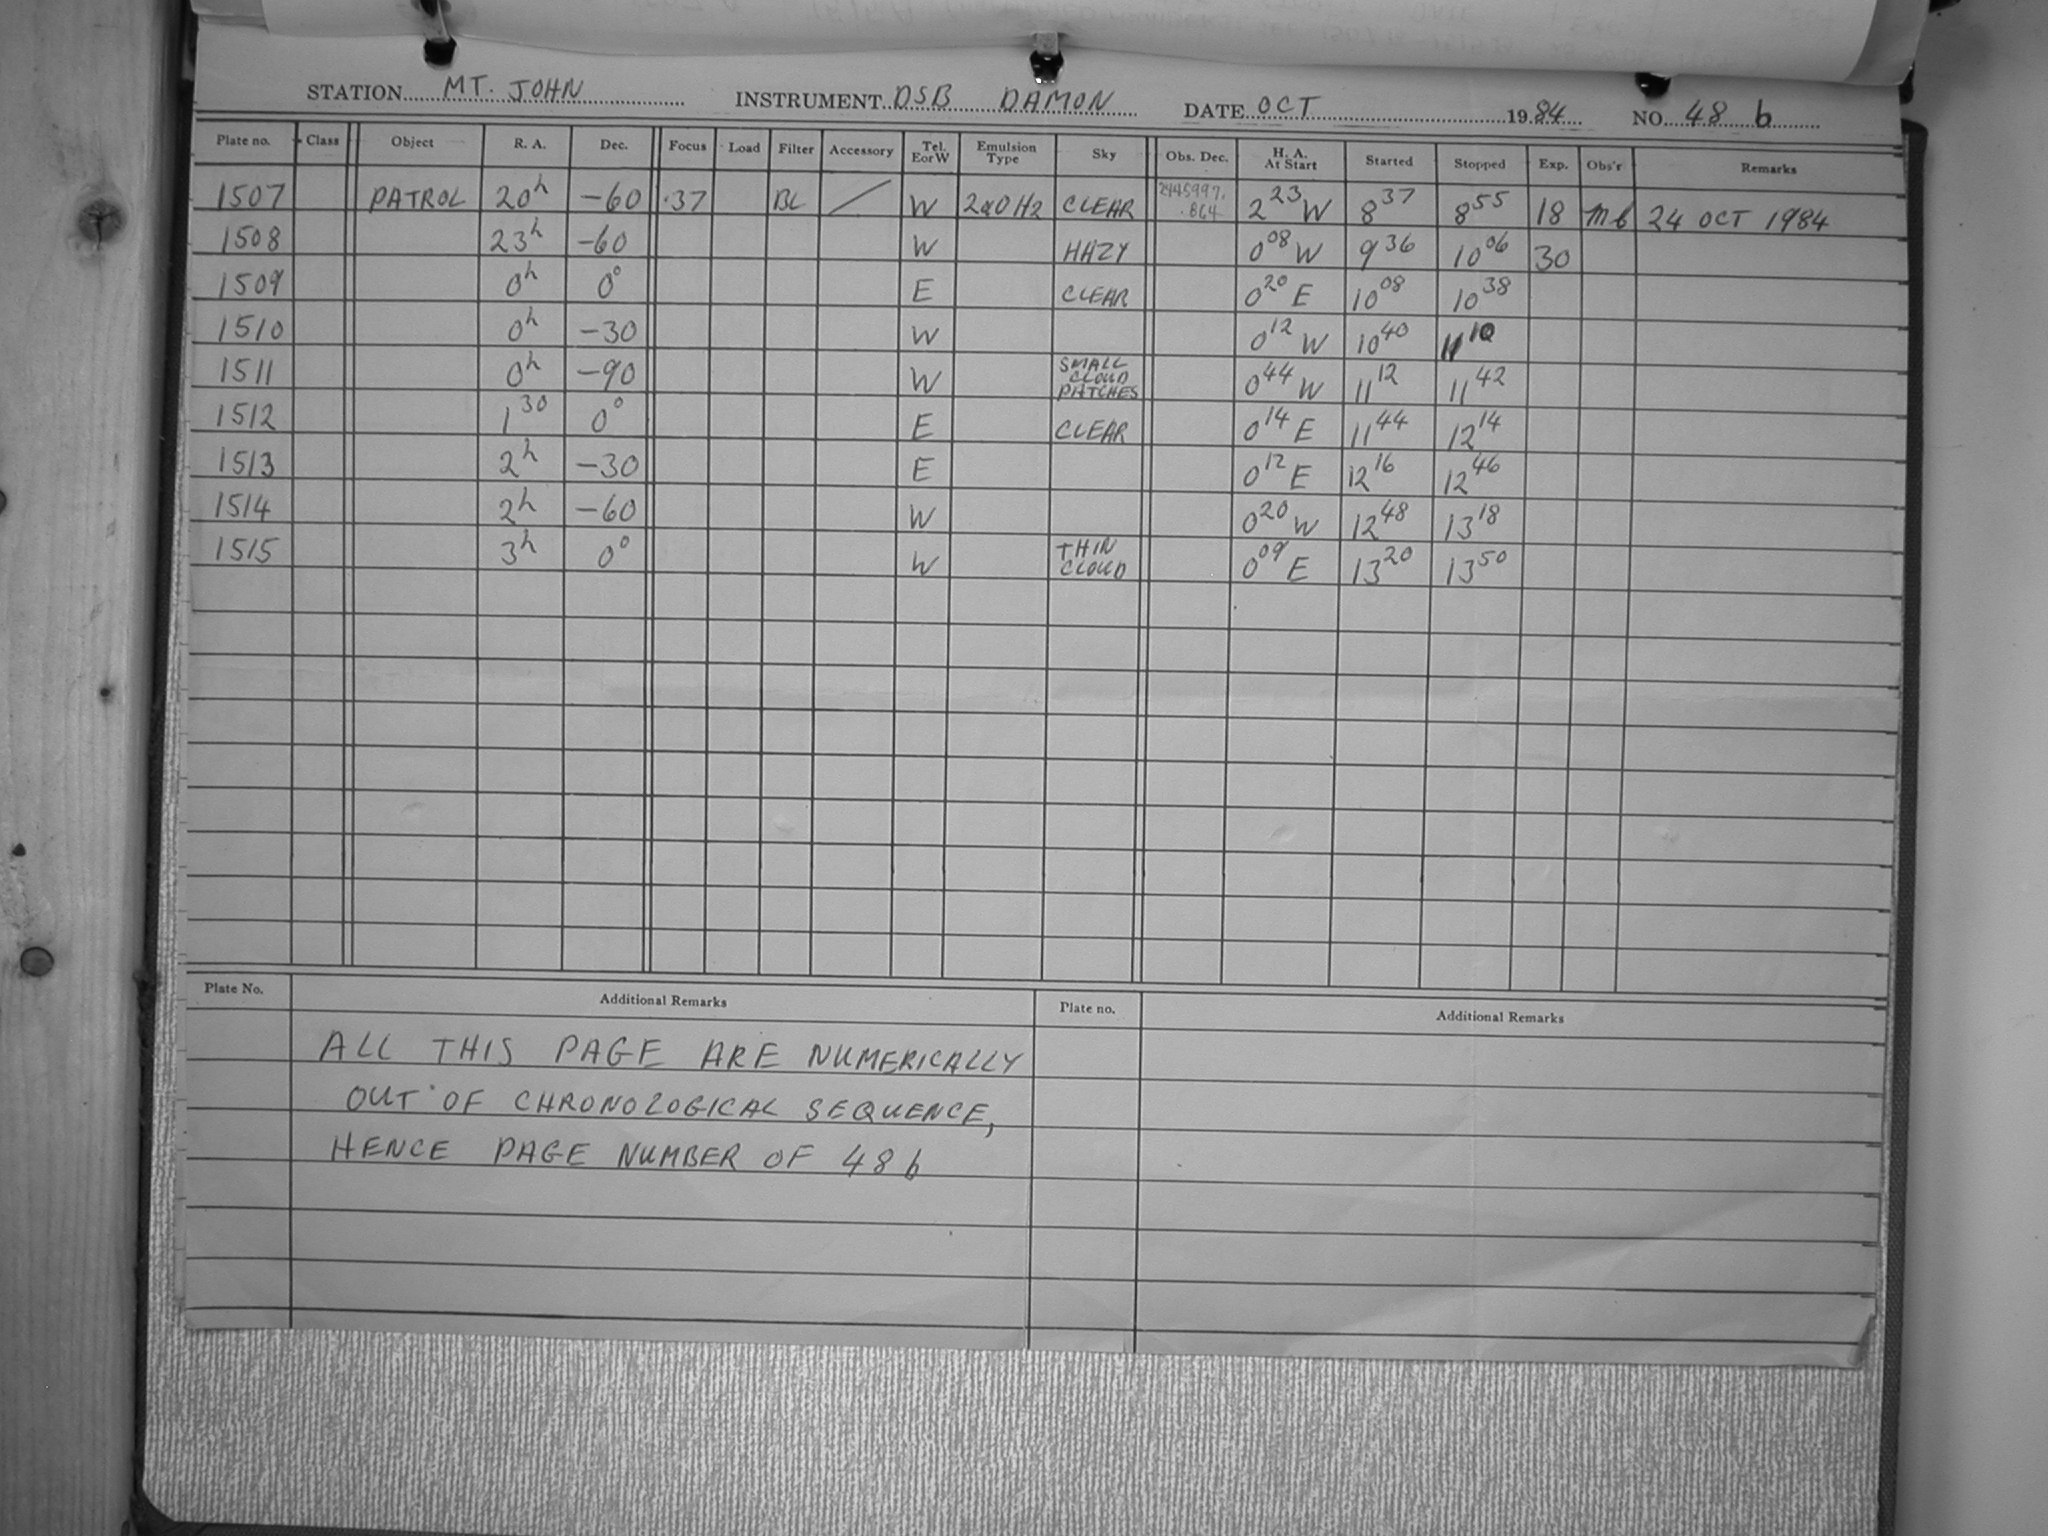 STATION MT. JOHN INSTRUMENT DSB DAMON DATE OCT 1984 NO. 48 b
Plate no. Class Object R. A. Dec. Focus Load Filter Accessory Tel. E or W Emulsion Type Sky Obs. Dec. H. A. At Start Started Stopped Exp. Obs'r Remarks
1507 PATROL 20h -60 .37 BL / W 2aO H2 CLEAR 2445997. .864 2 23 W 8 37 8 55 18 MC 24 OCT 1984
1508 23h -60 W HAZY 0 08 W 9 36 10 06 30
1509 0h 0° E CLEAR 0 20 E 10 08 10 38
1510 0h -30 W 0 12 W 10 40 11 10
1511 0h -90 W SMALL CLOUD PATCHES 0 44 W 11 12 11 42
1512 1 30 0° E CLEAR 0 14 E 11 44 12 14
1513 2h -30 E 0 12 E 12 16 12 46
1514 2h -60 W 0 20 W 12 48 13 18
1515 3h 0° W THIN CLOUD 0 09 E 13 20 13 50
Plate No. Additional Remarks Plate no. Additional Remarks
ALL THIS PAGE ARE NUMERICALLY
OUT OF CHRONOLOGICAL SEQUENCE,
HENCE PAGE NUMBER OF 48 b